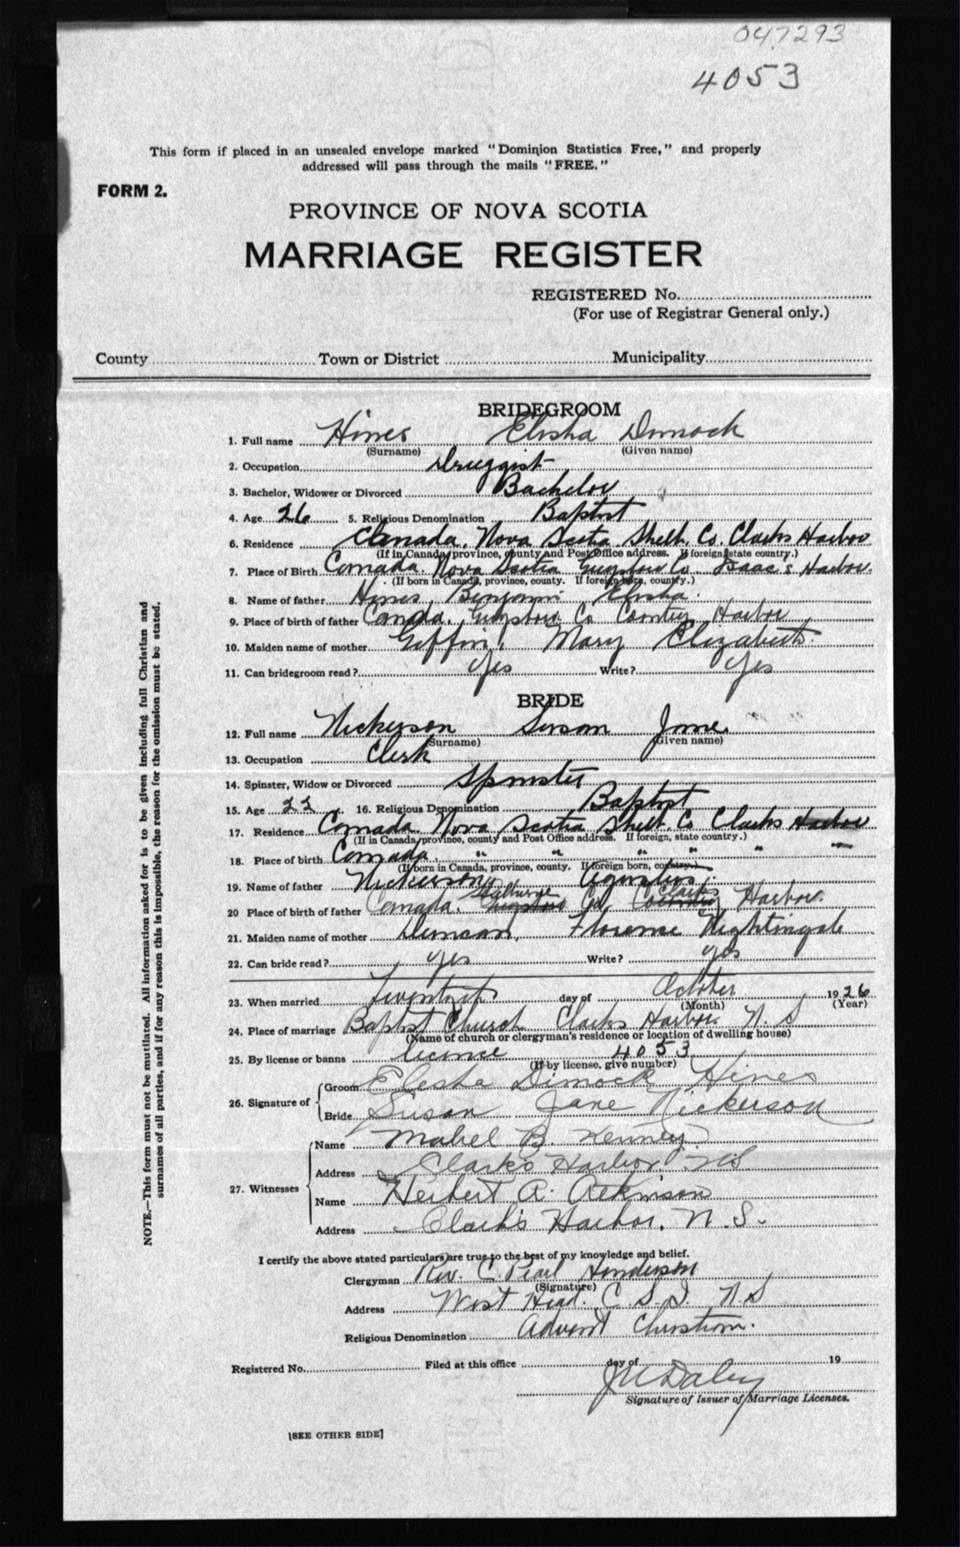 047293
4053
This form if placed in an unsealed envelope marked "Dominion Statistics Free," and properly
addressed will pass through the mails "FREE."
FORM 2.
PROVINCE OF NOVA SCOTIA
MARRIAGE REGISTER
REGISTERED No.
(For use of Registrar General only.)
County Town or District Municipality
BRIDEGROOM
1. Full name Hines Elisha Dimock
(Surname) (Given name)
2. Occupation Druggist
3. Bachelor, Widower or Divorced Bachelor
4. Age 26 5. Religious Denomination Baptist
6. Residence Canada, Nova Scotia Shelb. Co. Clarks Harbor
(If in Canada, province, county and Post Office address. If foreign, state country.)
7. Place of Birth Canada, Nova Scotia Guysboro Co Isaac's Harbor.
(If born in Canada, province, county. If foreign born, country.)
8. Name of father Hines, Benjamin Elisha.
9. Place of birth of father Canada, Guysboro Co Country Harbor
10. Maiden name of mother Giffin, Mary Elizabeth.
11. Can bridegroom read? Yes Write? Yes
BRIDE
12. Full name Nickerson Susan Jane
(Surname) (Given name)
13. Occupation Clerk
14. Spinster, Widow or Divorced Spinster
15. Age 22 16. Religious Denomination Baptist
17. Residence Canada Nova Scotia Shelb. Co Clarks Harbor
(If in Canada, province, county and Post Office address. If foreign, state country.)
18. Place of birth Canada. " " " " " "
(If born in Canada, province, county. If foreign born, country.)
19. Name of father Nickerson, 
20 Place of birth of father Canada. Shelburne Guysboro Co, Clarks Country Harbor.
21. Maiden name of mother Duncan, Florence Nightingale
22. Can bride read? yes Write? yes
23. When married Twentieth day of October 1926
(Month) (Year)
24. Place of marriage Baptist Church Clarks Harbor. N S
(Name of church or clergyman's residence or location of dwelling house)
25. By license or banns licence 4053
(If by license, give number)
26. Signature of Groom Elisha Dimock Hines
Bride Susan Jane Nickerson
27. Witnesses Name Mabel B. Kenney.
Address Clark's Harbor N S
Name Herbert R. Atkinson
Address Clark's Harbor, N. S.
I certify the above stated particulars are true to the best of my knowledge and belief.
Clergyman Rev. C Pearl Henderson
(Signature)
Address West Head. C. S. I. N. S
Religious Denomination Advent Christian.
Registered No. Filed at this office day of 19
Signature of Issuer of Marriage Licenses.
[SEE OTHER SIDE]
NOTE.—This form must not be mutilated. All information asked for is to be given including full Christian and
surnames of all parties, and if for any reason this is impossible, the reason for the omission must be stated.